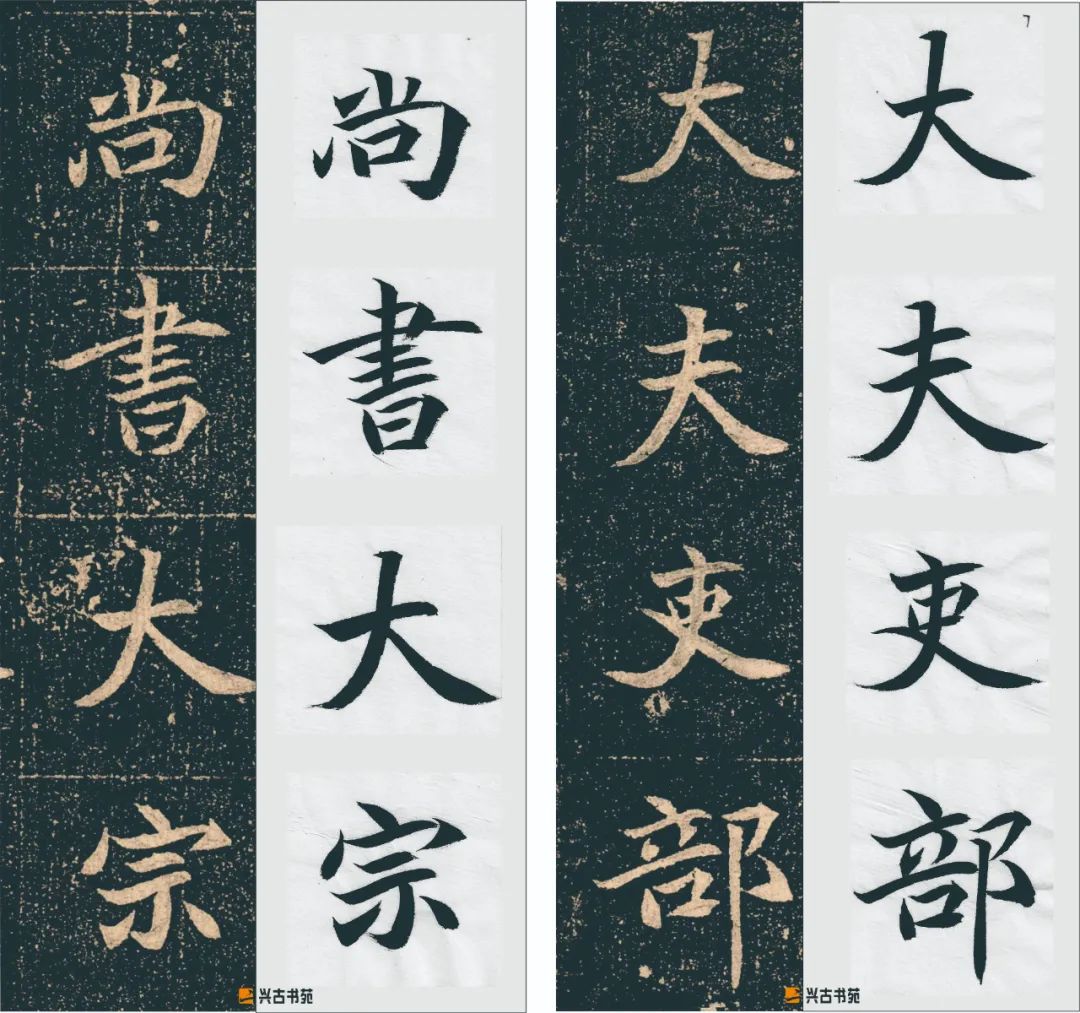 尚 尚
書 書
大 大
宗 宗
兴古书苑
大 大
夫 夫
吏 吏
部 部
兴古书苑